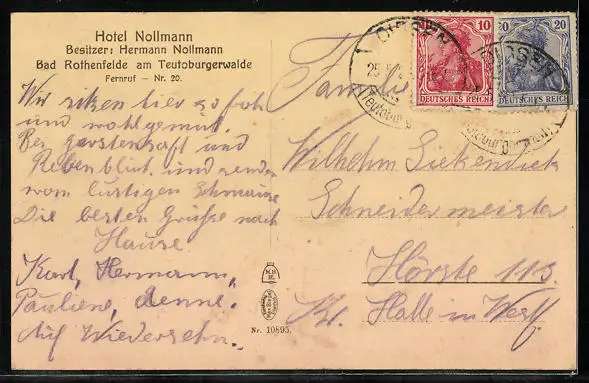 Hotel Nollmann
Besitzer: Hermann Nollmann
Bad Rothenfelde am Teutoburgerwalde
Fernruf — Nr. 20.
Wir sitzen hier so froh
und wohlgemut.
Bei Gerstensaft und
Rebenblut. und senden
vom lustigen Schmause
Die besten Grüsse nach
Hause.
Karl, Hermann,
Pauliene, Aenne.
Auf Wiedersehn.
Familie
Wilhelm Siekendiek
Schneidermeister
Hörste 113
Kr. Halle in Westf
10
DEUTSCHES REICH
20
DEUTSCHES REICH
DISSEN
25
DISSEN
Nr. 10895.